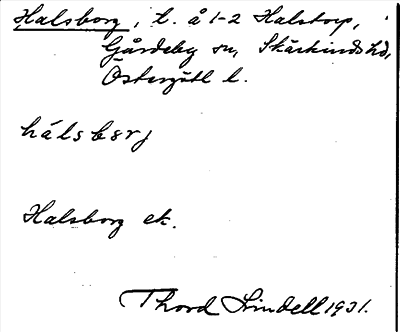 Halsborg, t. å 1-2 Halstorp,
Gårdeby sn, Skärkinds hd,
Östergötl l.
hálsbɛrj
Halsborg ek.
Thord Lindell 1931.